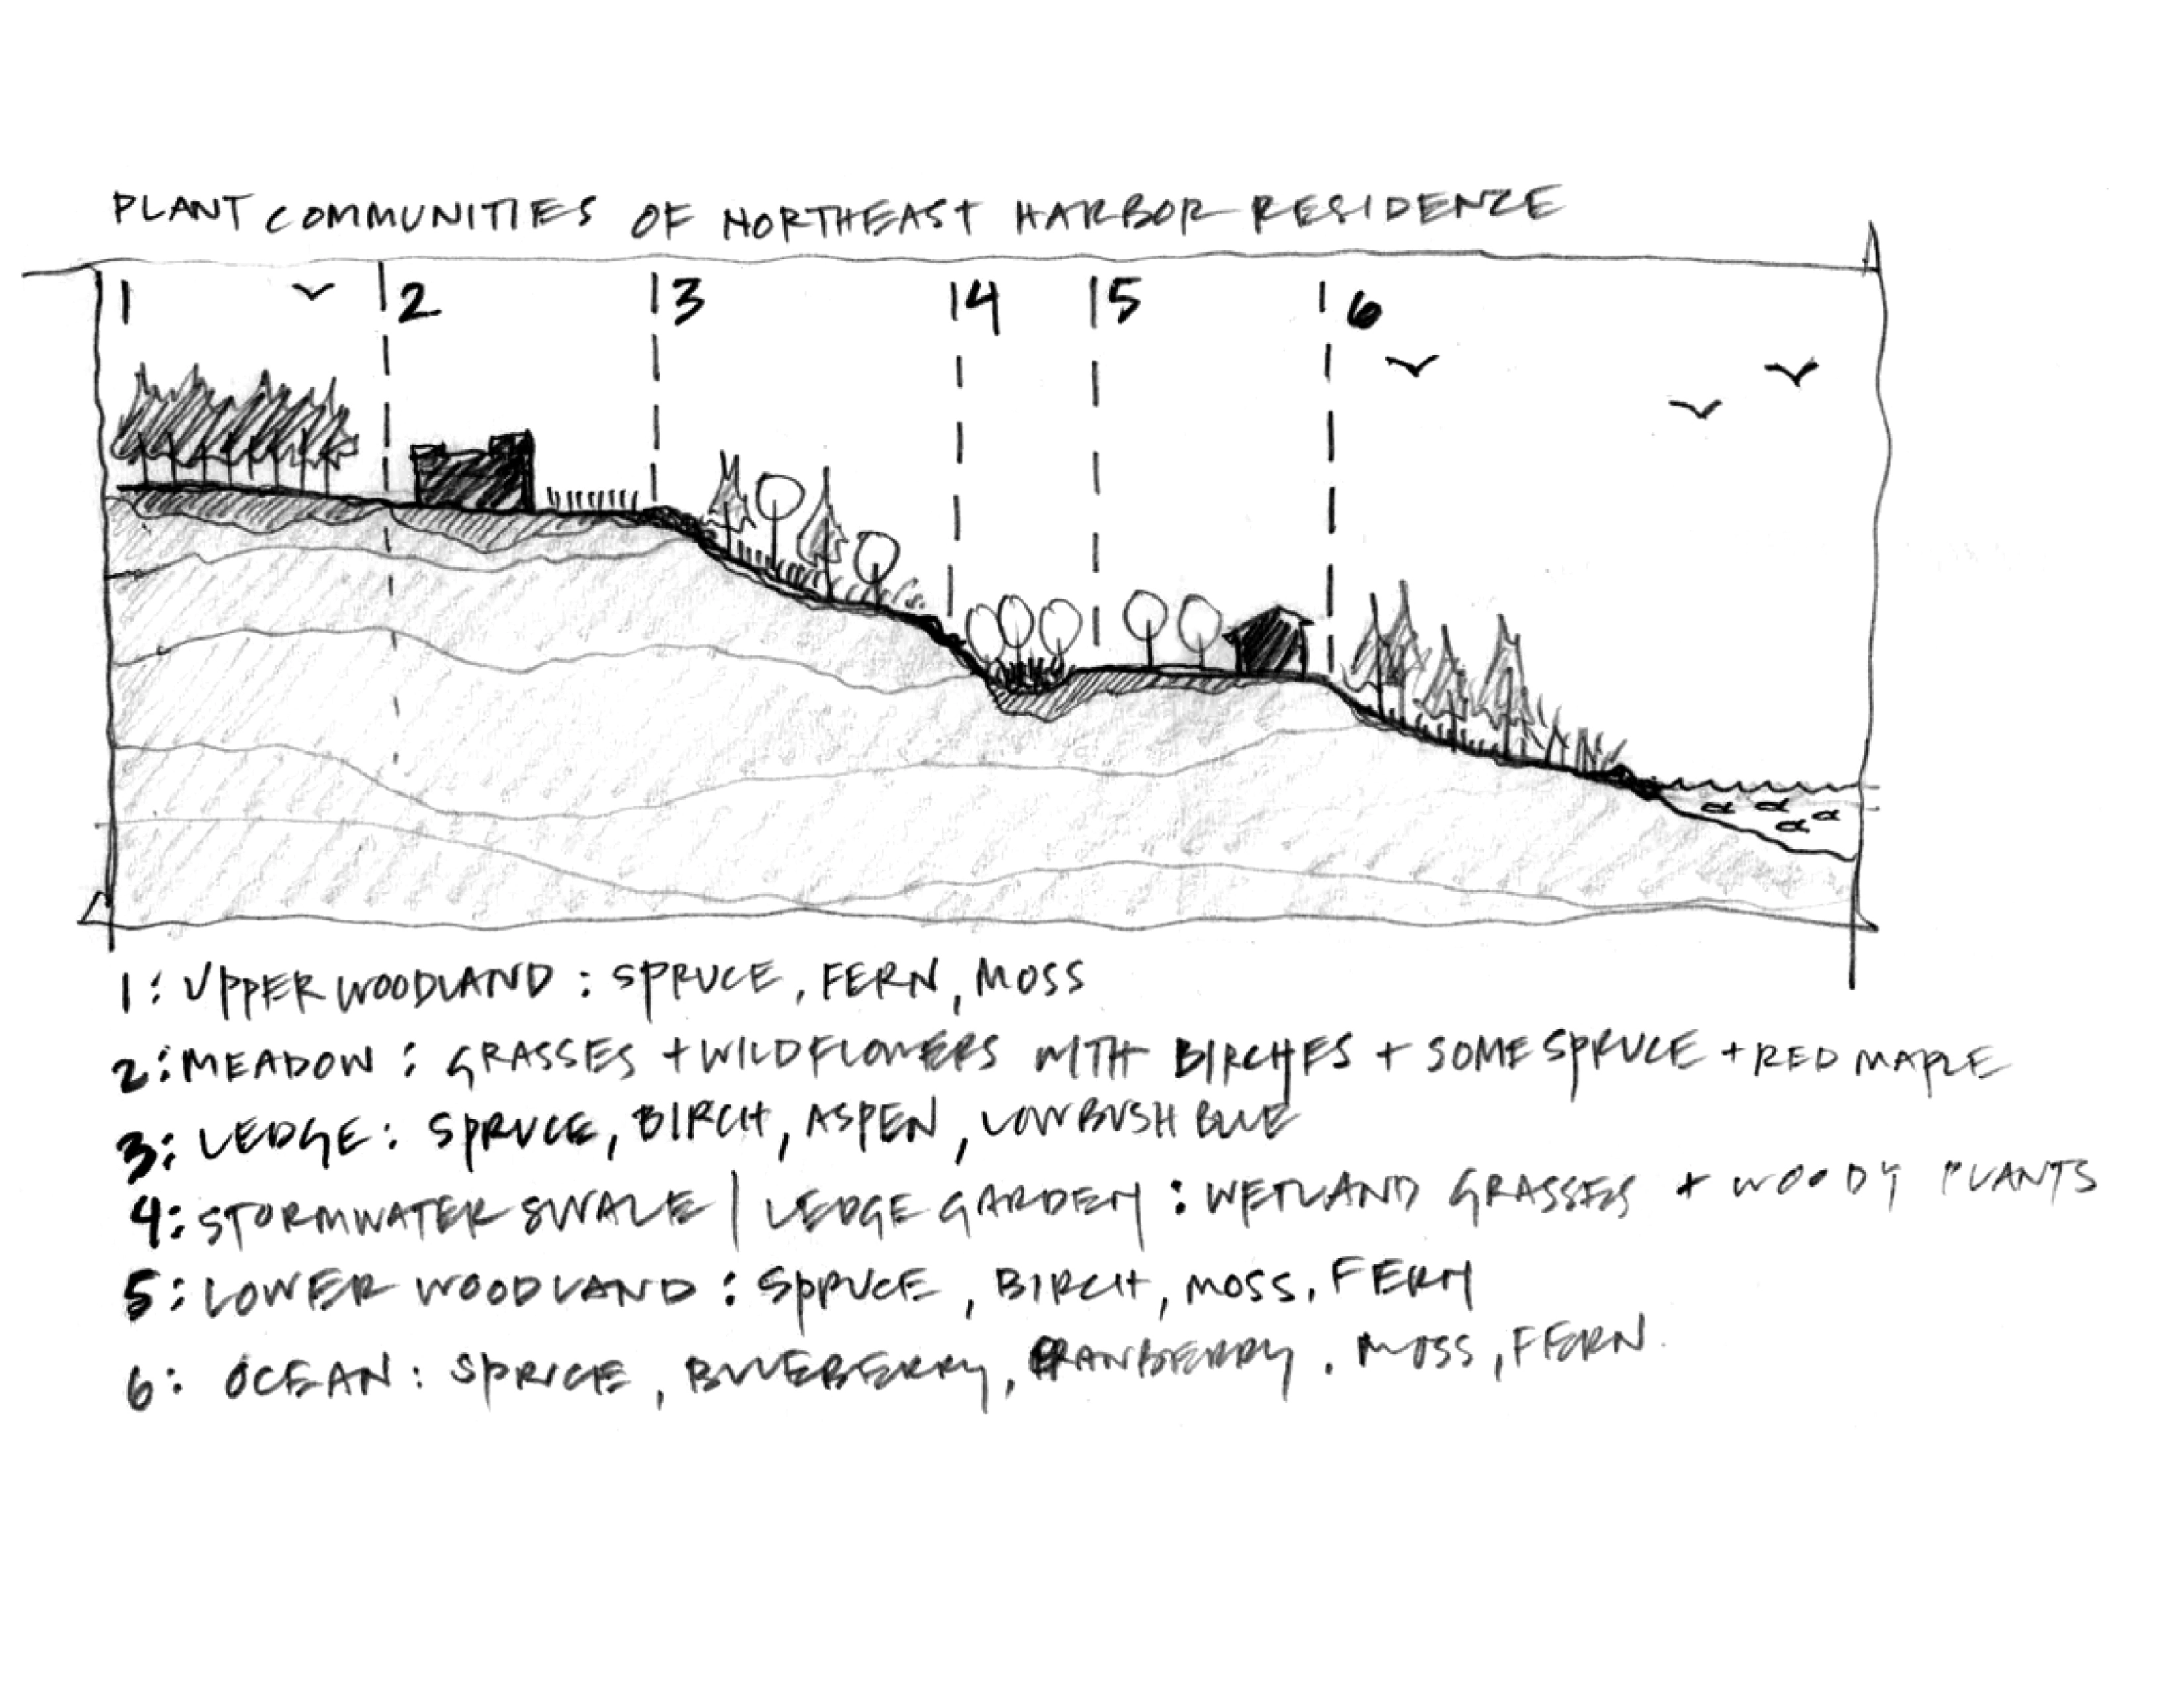 PLANT COMMUNITIES OF NORTHEAST HARBOR RESIDENCE
1 2 3 4 5 6
1: UPPER WOODLAND: SPRUCE, FERN, MOSS
2: MEADOW: GRASSES + WILDFLOWERS WITH BIRCHES + SOME SPRUCE + RED MAPLE
3: LEDGE: SPRUCE, BIRCH, ASPEN, LOWBUSH BLUE
4: STORMWATER SWALE | LEDGE GARDEN: WETLAND GRASSES + WOODY PLANTS
5: LOWER WOODLAND: SPRUCE, BIRCH, MOSS, FERN
6: OCEAN: SPRUCE, BLUEBERRY, CRANBERRY, MOSS, FERN.